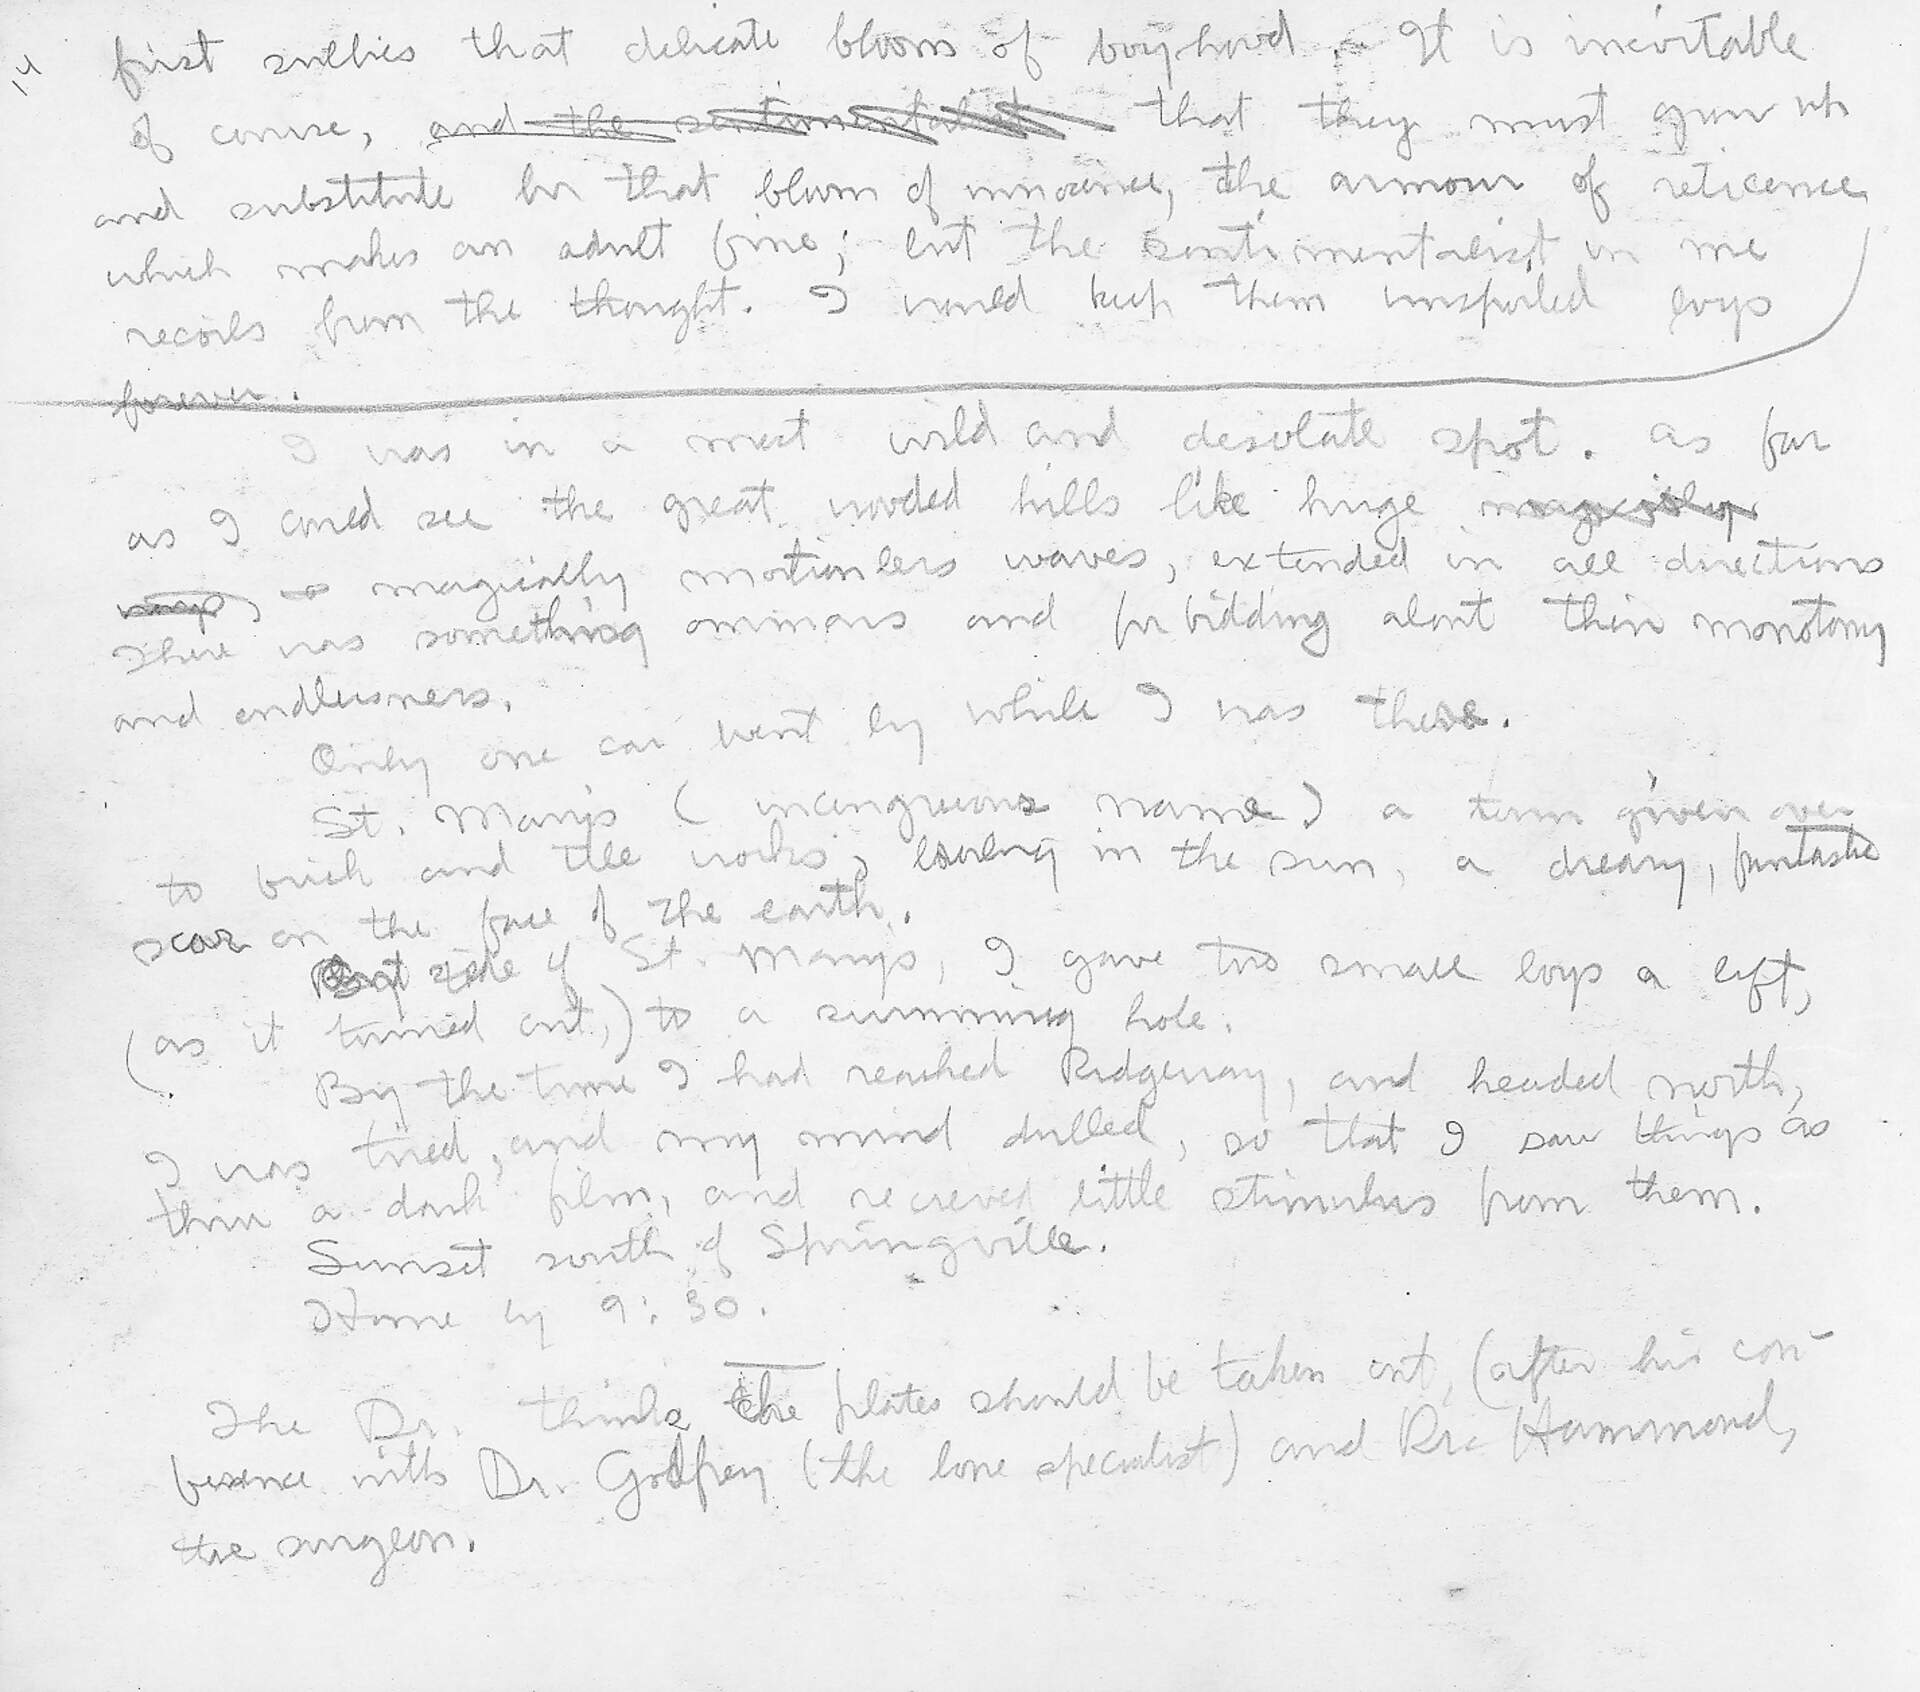 14
first sullies that delicate bloom of boyhood. It is inevitable
of course, and the sentimentalist that they must grow up
and substitute for that bloom of innocence, the armour of reticence
which makes an adult fine; but the sentimentalist in me
recoils from the thought. I would keep them unspoiled boys
forever.
I was in a most wild and desolate spot. As far
as I could see the great wooded hills like huge
magically motionless waves, extended in all directions
There was something ominous and forbidding about their monotony
and endlessness.
Only one car went by while I was there.
St. Marys (incongruous name) a town given over
to brick and tile works, in the sun, a dreary, fantastic
scar on the face of the earth.
side of St. Marys, I gave two small boys a lift,
(as it turned out,) to a swimming hole.
By the time I had reached Ridgeway, and headed north,
I was tired, and my mind dulled, so that I saw things as
thru a dark film, and recieved little stimulus from them.
Sunset south of Springville.
Home by 9:30.
The Dr. thinks the plates should be taken out, (after his con-
ference with Dr. Godfrey (the bone specialist) and Dr. Hammond,
the surgeon.